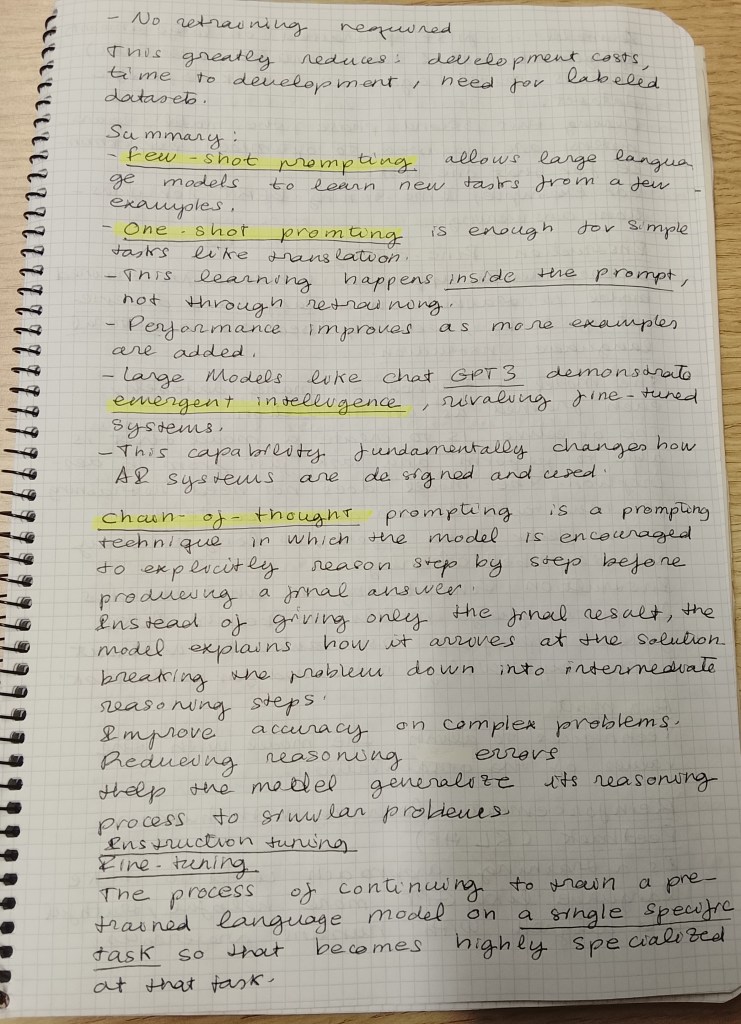 - No retraining required
This greatly reduces: development costs,
time to development, need for labeled
datasets.
Summary:
- few-shot prompting allows large langua
ge models to learn new tasks from a few
examples.
- One-shot promting is enough for simple
tasks like translation.
- This learning happens inside the prompt,
not through retraining.
- Performance improves as more examples
are added.
- Large Models like chat GPT3 demonstrate
emergent intelligence, rivaling fine-tuned
systems.
- This capability fundamentally changes how
AI systems are designed and used.
Chain-of-thought prompting is a prompting
technique in which the model is encouraged
to explicitly reason step by step before
producing a final answer.
Instead of giving only the final result, the
model explains how it arrives at the solution
breaking the problem down into intermediate
reasoning steps.
Improve accuracy on complex problems.
Reducing reasoning errors
Help the model generalize its reasoning
process to similar problems
Instruction tuning
Fine-tuning
The process of continuing to train a pre-
trained language model on a single specific
task so that becomes highly specialized
at that task.